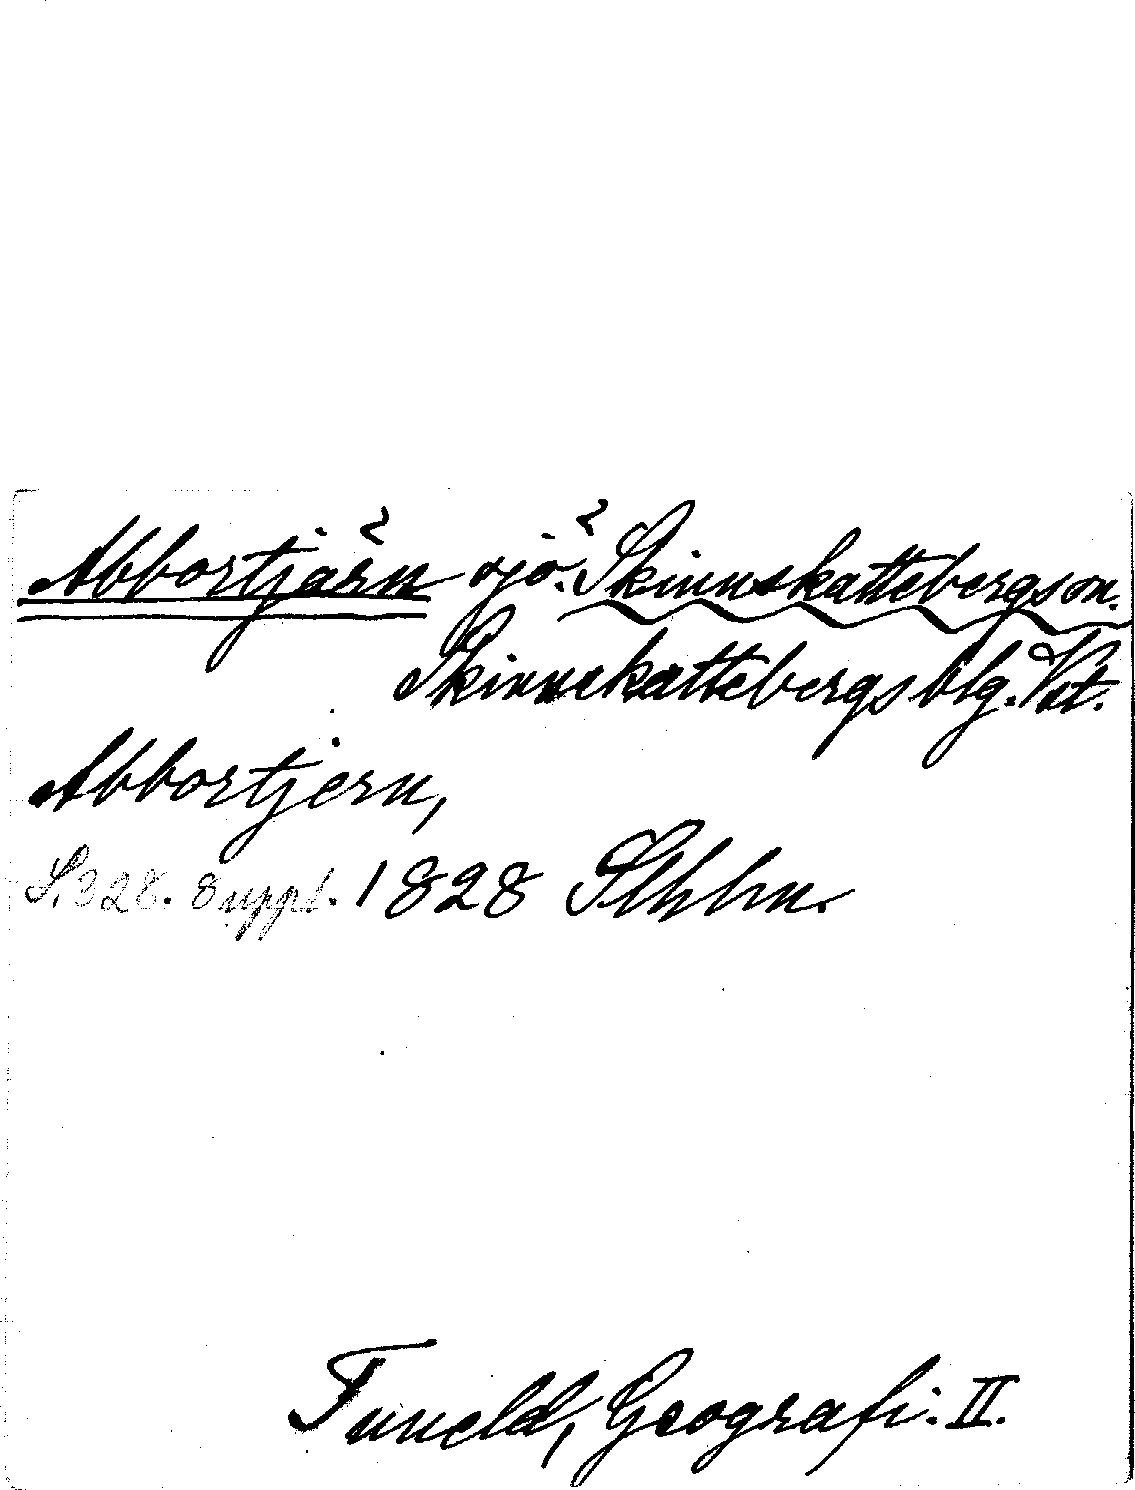 Abbortjärn sjö. Skinnskattebergs sn.
Skinnskattebergs blg. Vst.
Abbortjern,
S. 328. 8 uppl. 1828 Sthlm.
Tuneld, Geografi. II.